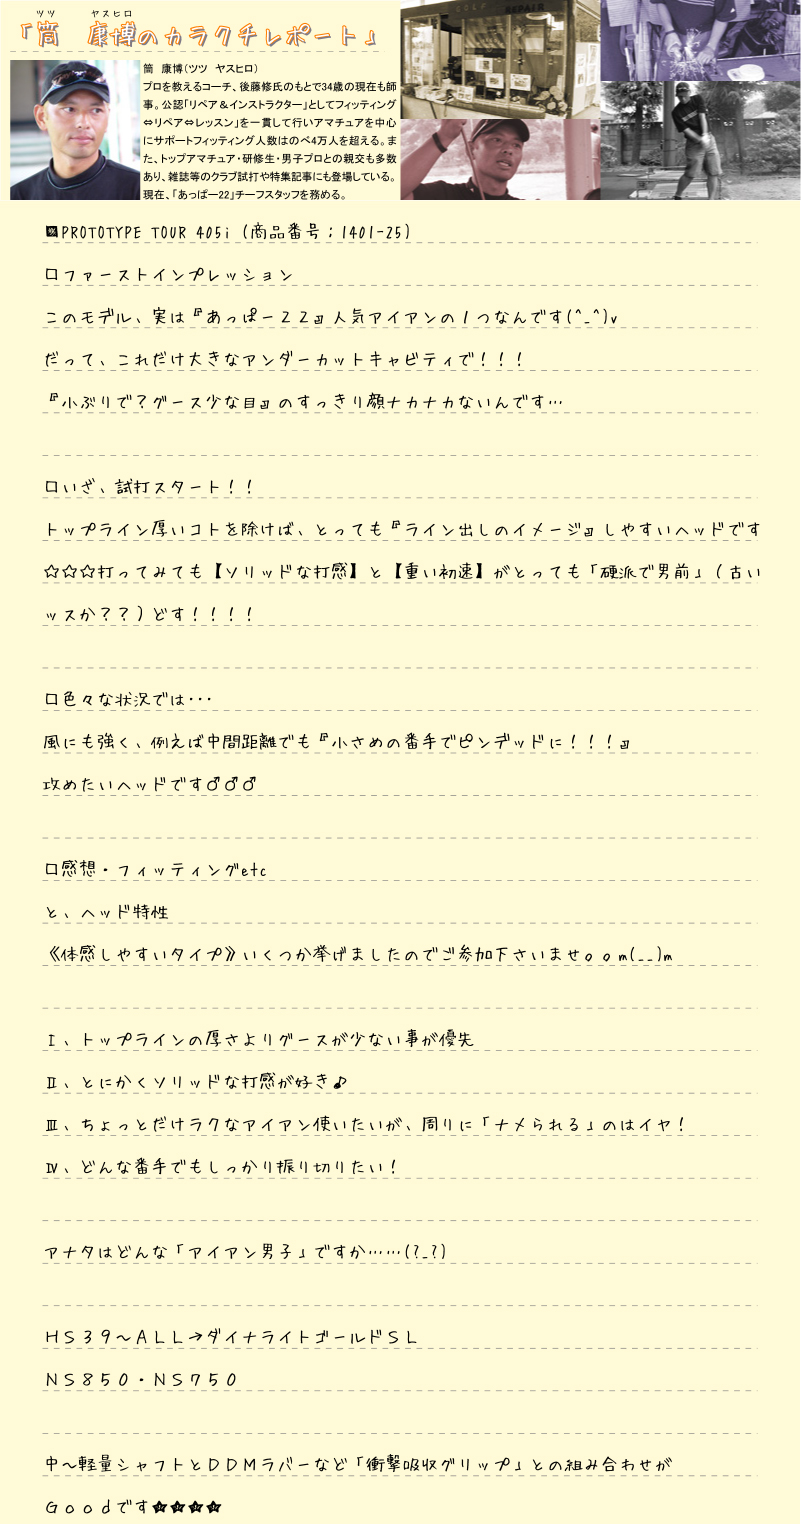 ツツ　ヤスヒロ
「筒　康博のカラクチレポート」
REPAIR
筒　康博（ツツ　ヤスヒロ）
プロを教えるコーチ、後藤修氏のもとで34歳の現在も師
事。公認「リペア＆インストラクター」としてフィッティング
⇔リペア⇔レッスン」を一貫して行いアマチュアを中心
にサポートフィッティング人数はのべ4万人を超える。ま
た、トップアマチュア・研修生・男子プロとの親交も多数
あり、雑誌等のクラブ試打や特集記事にも登場している。
現在、「あっぱー22」チーフスタッフを務める。
PROTOTYPE TOUR 405i（商品番号：1401-25）
□ファーストインプレッション
このモデル、実は『あっぱー２２』人気アイアンの１つなんです(^_^)v
だって、これだけ大きなアンダーカットキャビティで！！！
『小ぶりで？グース少な目』のすっきり顔ナカナカないんです…
□いざ、試打スタート！！
トップライン厚いコトを除けば、とっても『ライン出しのイメージ』しやすいヘッドです
☆☆☆打ってみても【ソリッドな打感】と【重い初速】がとっても「硬派で男前」（古い
ッスか？？）どす！！！！
□色々な状況では･･･
風にも強く、例えば中間距離でも『小さめの番手でピンデッドに！！！』
攻めたいヘッドです♂♂♂
□感想・フィッティングetc
と、ヘッド特性
《体感しやすいタイプ》いくつか挙げましたのでご参加下さいませｏｏm(__)m
Ⅰ、トップラインの厚さよりグースが少ない事が優先
Ⅱ、とにかくソリッドな打感が好き♪
Ⅲ、ちょっとだけラクなアイアン使いたいが、周りに「ナメられる」のはイヤ！
Ⅳ、どんな番手でもしっかり振り切りたい！
アナタはどんな「アイアン男子」ですか……(?_?)
ＨＳ３９～ＡＬＬ→ダイナライトゴールドＳＬ
ＮＳ８５０・ＮＳ７５０
中～軽量シャフトとＤＤＭラバーなど「衝撃吸収グリップ」との組み合わせが
Ｇｏｏｄです★★★★